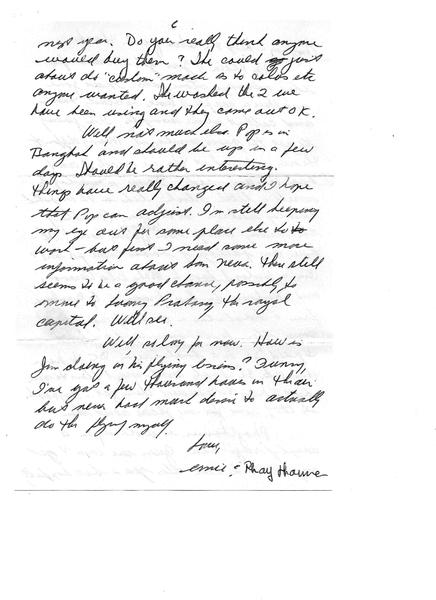 6
next year. Do you really think anyone
would buy them? She could go just
about do "custom" made as to colors etc
anyone wanted. She washed the 2 we
have been using and they came out OK.
Well not much else. Pop is in
Bangkok and should be up in a few
days. Should be rather interesting.
Things have really changed and I hope
that Pop can adjust. I'm still keeping
my eye out for some place else to to
work - but first I need some more
information about Sam Neua. There still
seems to be a good chance, possibly to
move to Luang Prabang the royal
capital. Will see.
Well so long for now. How is
Jim doing in his flying lessons? Funny,
I've got a few thousand hours in the air
but never had much desire to actually
do the flying myself.
Love,
Ernie & Phay Thoune